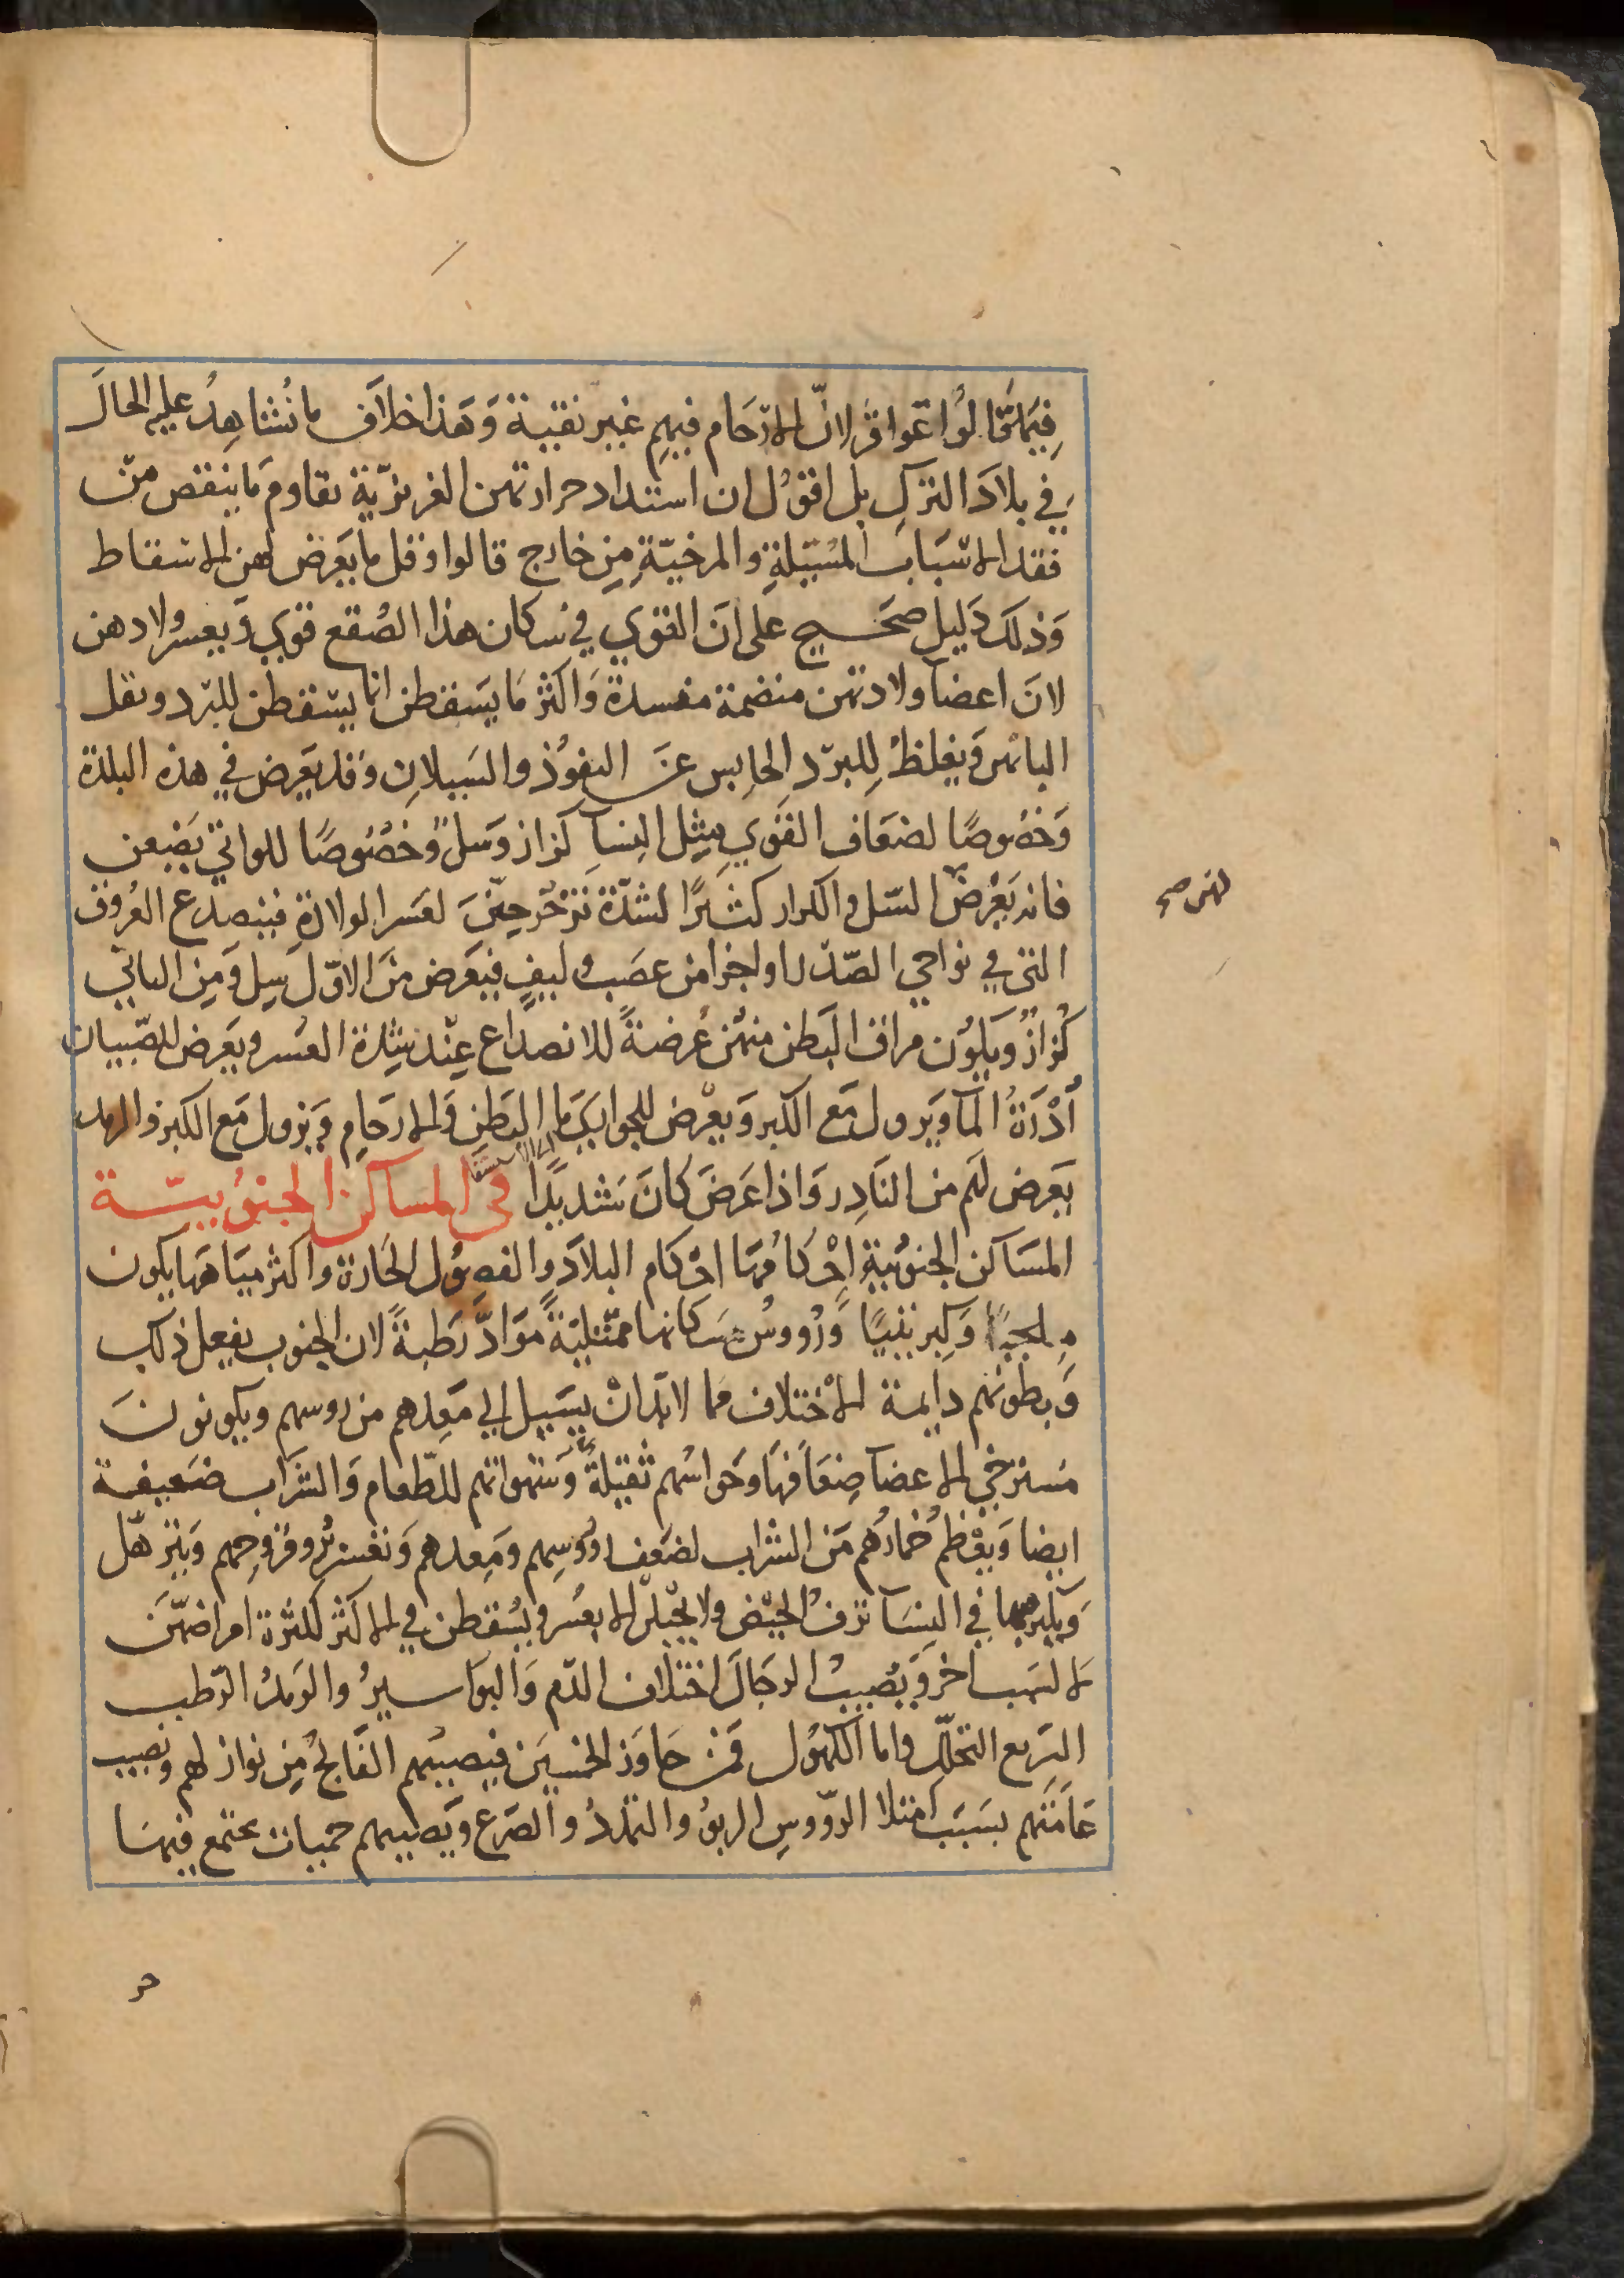 فيما قالوا عواقر لان الارحام فيهم غير نقية وهذا خلاف ما نشاهد عليه الحال
في بلاد الترك بل اقول ان اشتداد حرارتهن الغريزية تقاوم ما ينقص من
فقد الاسباب المسيلة والمرخية من خارج قالوا وقل ما يعرض لهن الاسقاط
وذلك دليل صحيح على ان القوي في سكان هذا الصقع قوي ويعسر ولادهن
لان اعضا ولادتهن منضمة منسدة واكثر ما يسقطن انما يسقطن للبرد وتقل
البانهن ويغلظ للبرد الحابس عن النفوذ والسيلان وقد يعرض في هذه البلدة
وخصوصا لضعاف القوي مثل النسا كزاز وسل وخصوصا للواتي يضعن
فانه يعرض السل والكزاز كثيرا لشدة تزحرهن لعسر الولادة فينصدع العروق
لهن صح
التي في نواحي الصدر او اجزا من عصب وليف فيعرض من الاول سل ومن الثاني
كزاز ويكون مراق البطن منهن عرضة للانصداع عند شدة العسر ويعرض للصبيان
أدرة الما ويزول مع الكبر ويعرض للجواري ما البطن والارحام ويزول مع الكبر والرمد
يعرض لهم من النادر واذا عرض كان شديدا في المساكن الجنوبية
المساكن الجنوبية احكامها احكام البلاد والفصول الحارة واكثر مياهها يكون
ملحيا وكبريتيا ورووس سكانها ممتلية مواد رطبة لان الجنوب يفعل ذلك
وبطونهم دايمة الاختلاف مما لابد ان يسيل الي معدهم من روسهم ويكونون
مسترخي الاعضا ضعافها وحواسهم ثقيلة وشهواتهم للطعام والشراب ضعيفة
ايضا ويعظم خمارهم من الشراب لضعف رووسهم ومعدهم وتعسر برو قروحهم ويترهل
ويكثر بها في النسا نزف الحيض ولا يحبلن الا بعسر ويسقطن في الاكثر لكثرة امراضهن
لا لسبب اخر ويصيب الرجال اختلاف الدم والبواسير والرمد الرطب
السريع التحلل واما الكهول فمن جاوز الخمسين فيصيبهم الفالج من نوازلهم ويصيب
عامتهم بسبب امتلا الرووس الربو والتمدد والصرع ويصيبهم حميات يجتمع فيها
حر